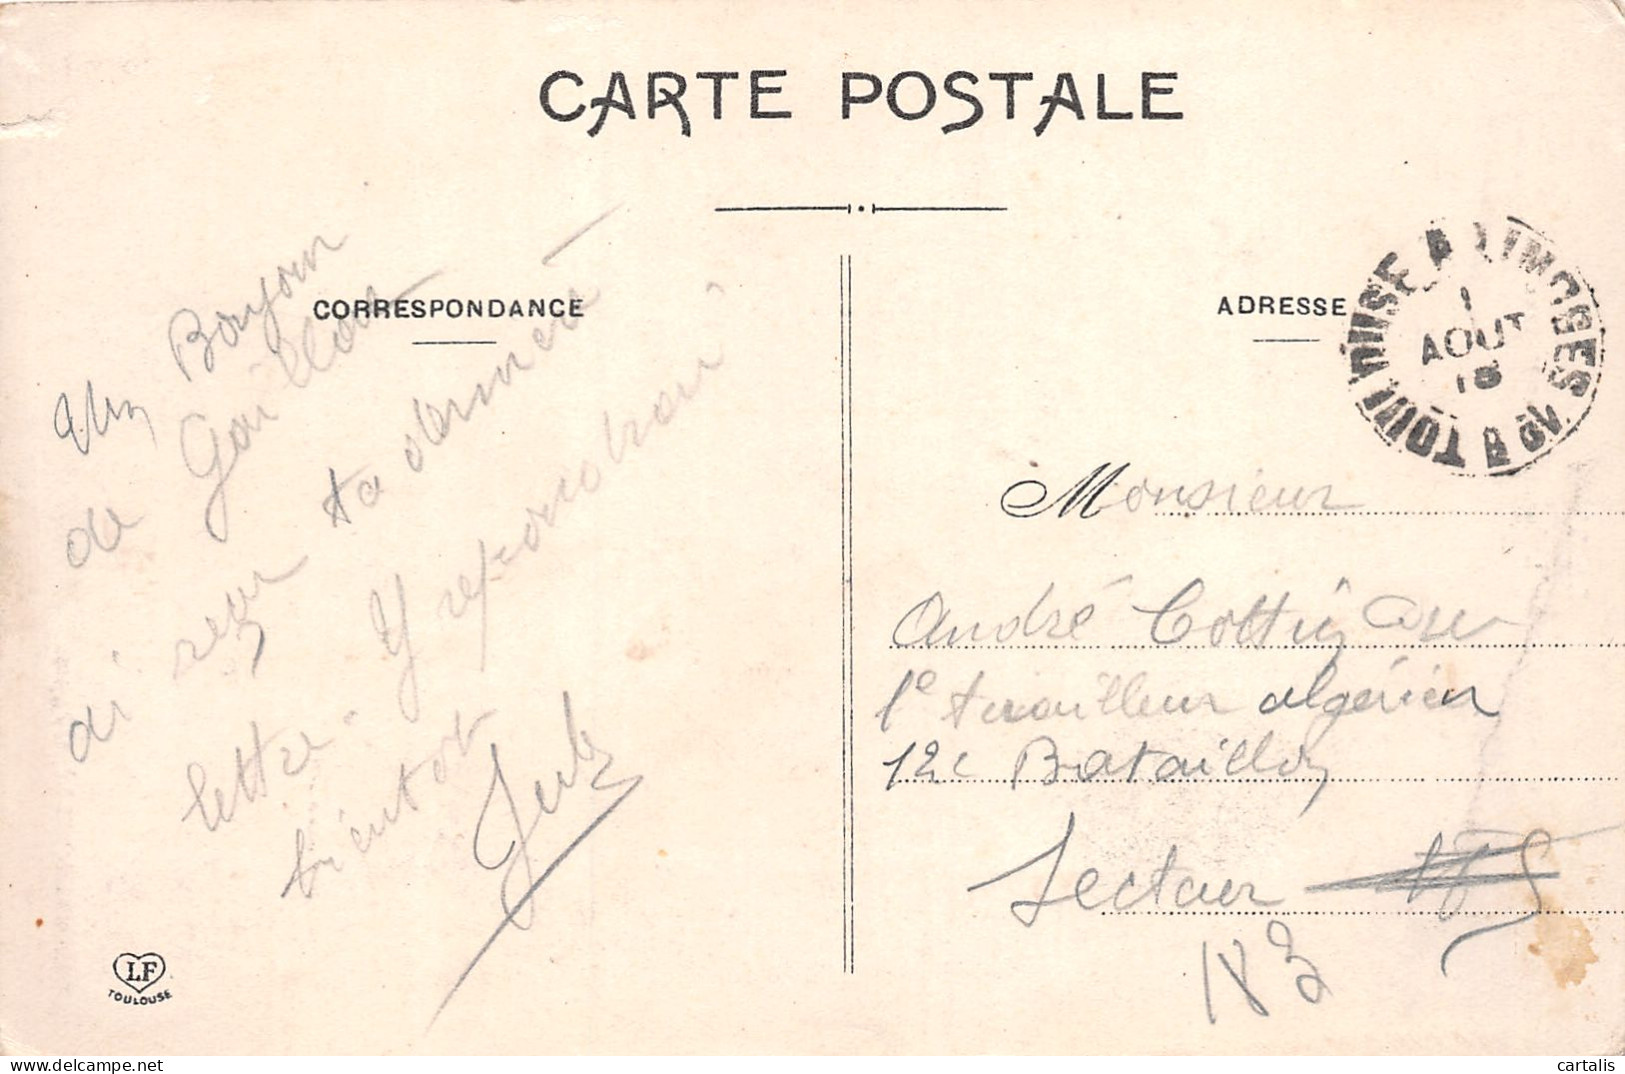 CARTE POSTALE
CORRESPONDANCE
Un Bonjour
de Gaillon
ai reçu ta dernière
lettre. Y répondrai
bientot
ADRESSE
TOULOUSE A LIMOGES
1
AOUT
18
Monsieur
André
1e tirailleur algérien
12e Bataillon
Secteur
183
LF
TOULOUSE
cartalis